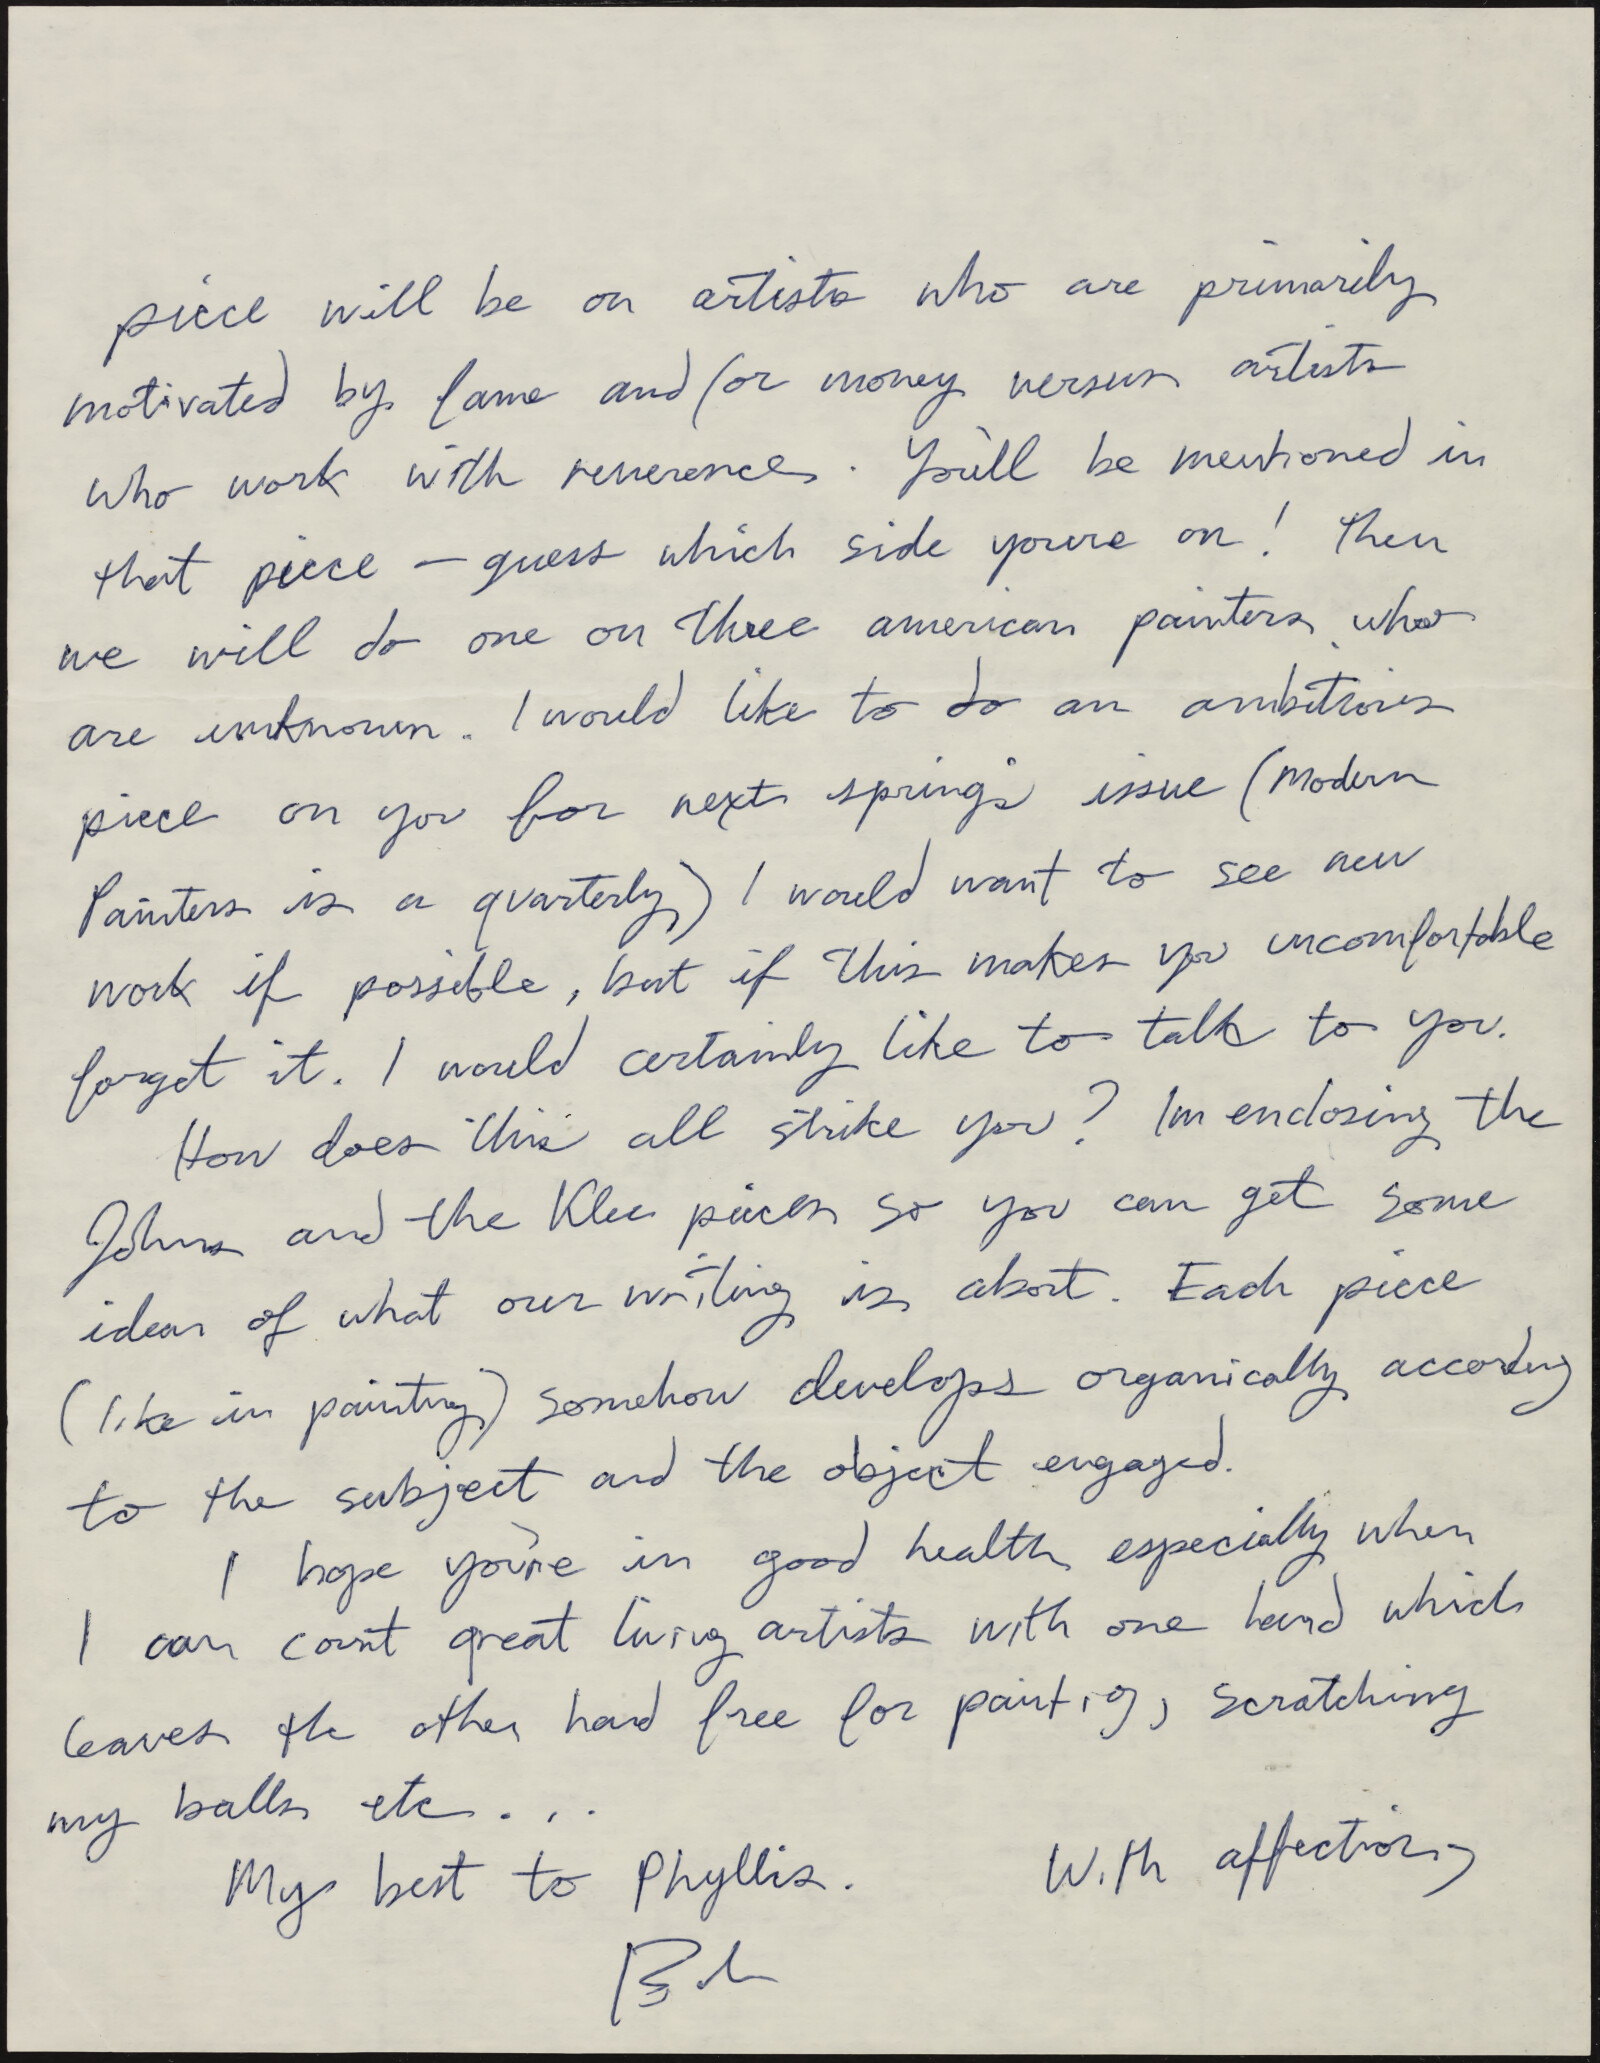 piece will be on artists who are primarily
motivated by fame and/or money versus artists
who work with reverence. You'll be mentioned in
that piece — guess which side youre on! Then
we will do one on three american painters who
are unknown. I would like to do an ambitious
piece on you for next spring's issue (Modern
Painters is a quarterly) I would want to see new
work if possible, but if this makes you uncomfortable
forget it. I would certainly like to talk to you.
How does this all strike you? Im enclosing the
Johns and the Klee pieces so you can get some
idea of what our writing is about. Each piece
(like in painting) somehow develops organically according
to the subject and the object engaged.
I hope you're in good health especially when
I can count great living artists with one hand which
leaves the other hand free for painting, scratching
my balls etc...
My best to Phyllis. With affection,